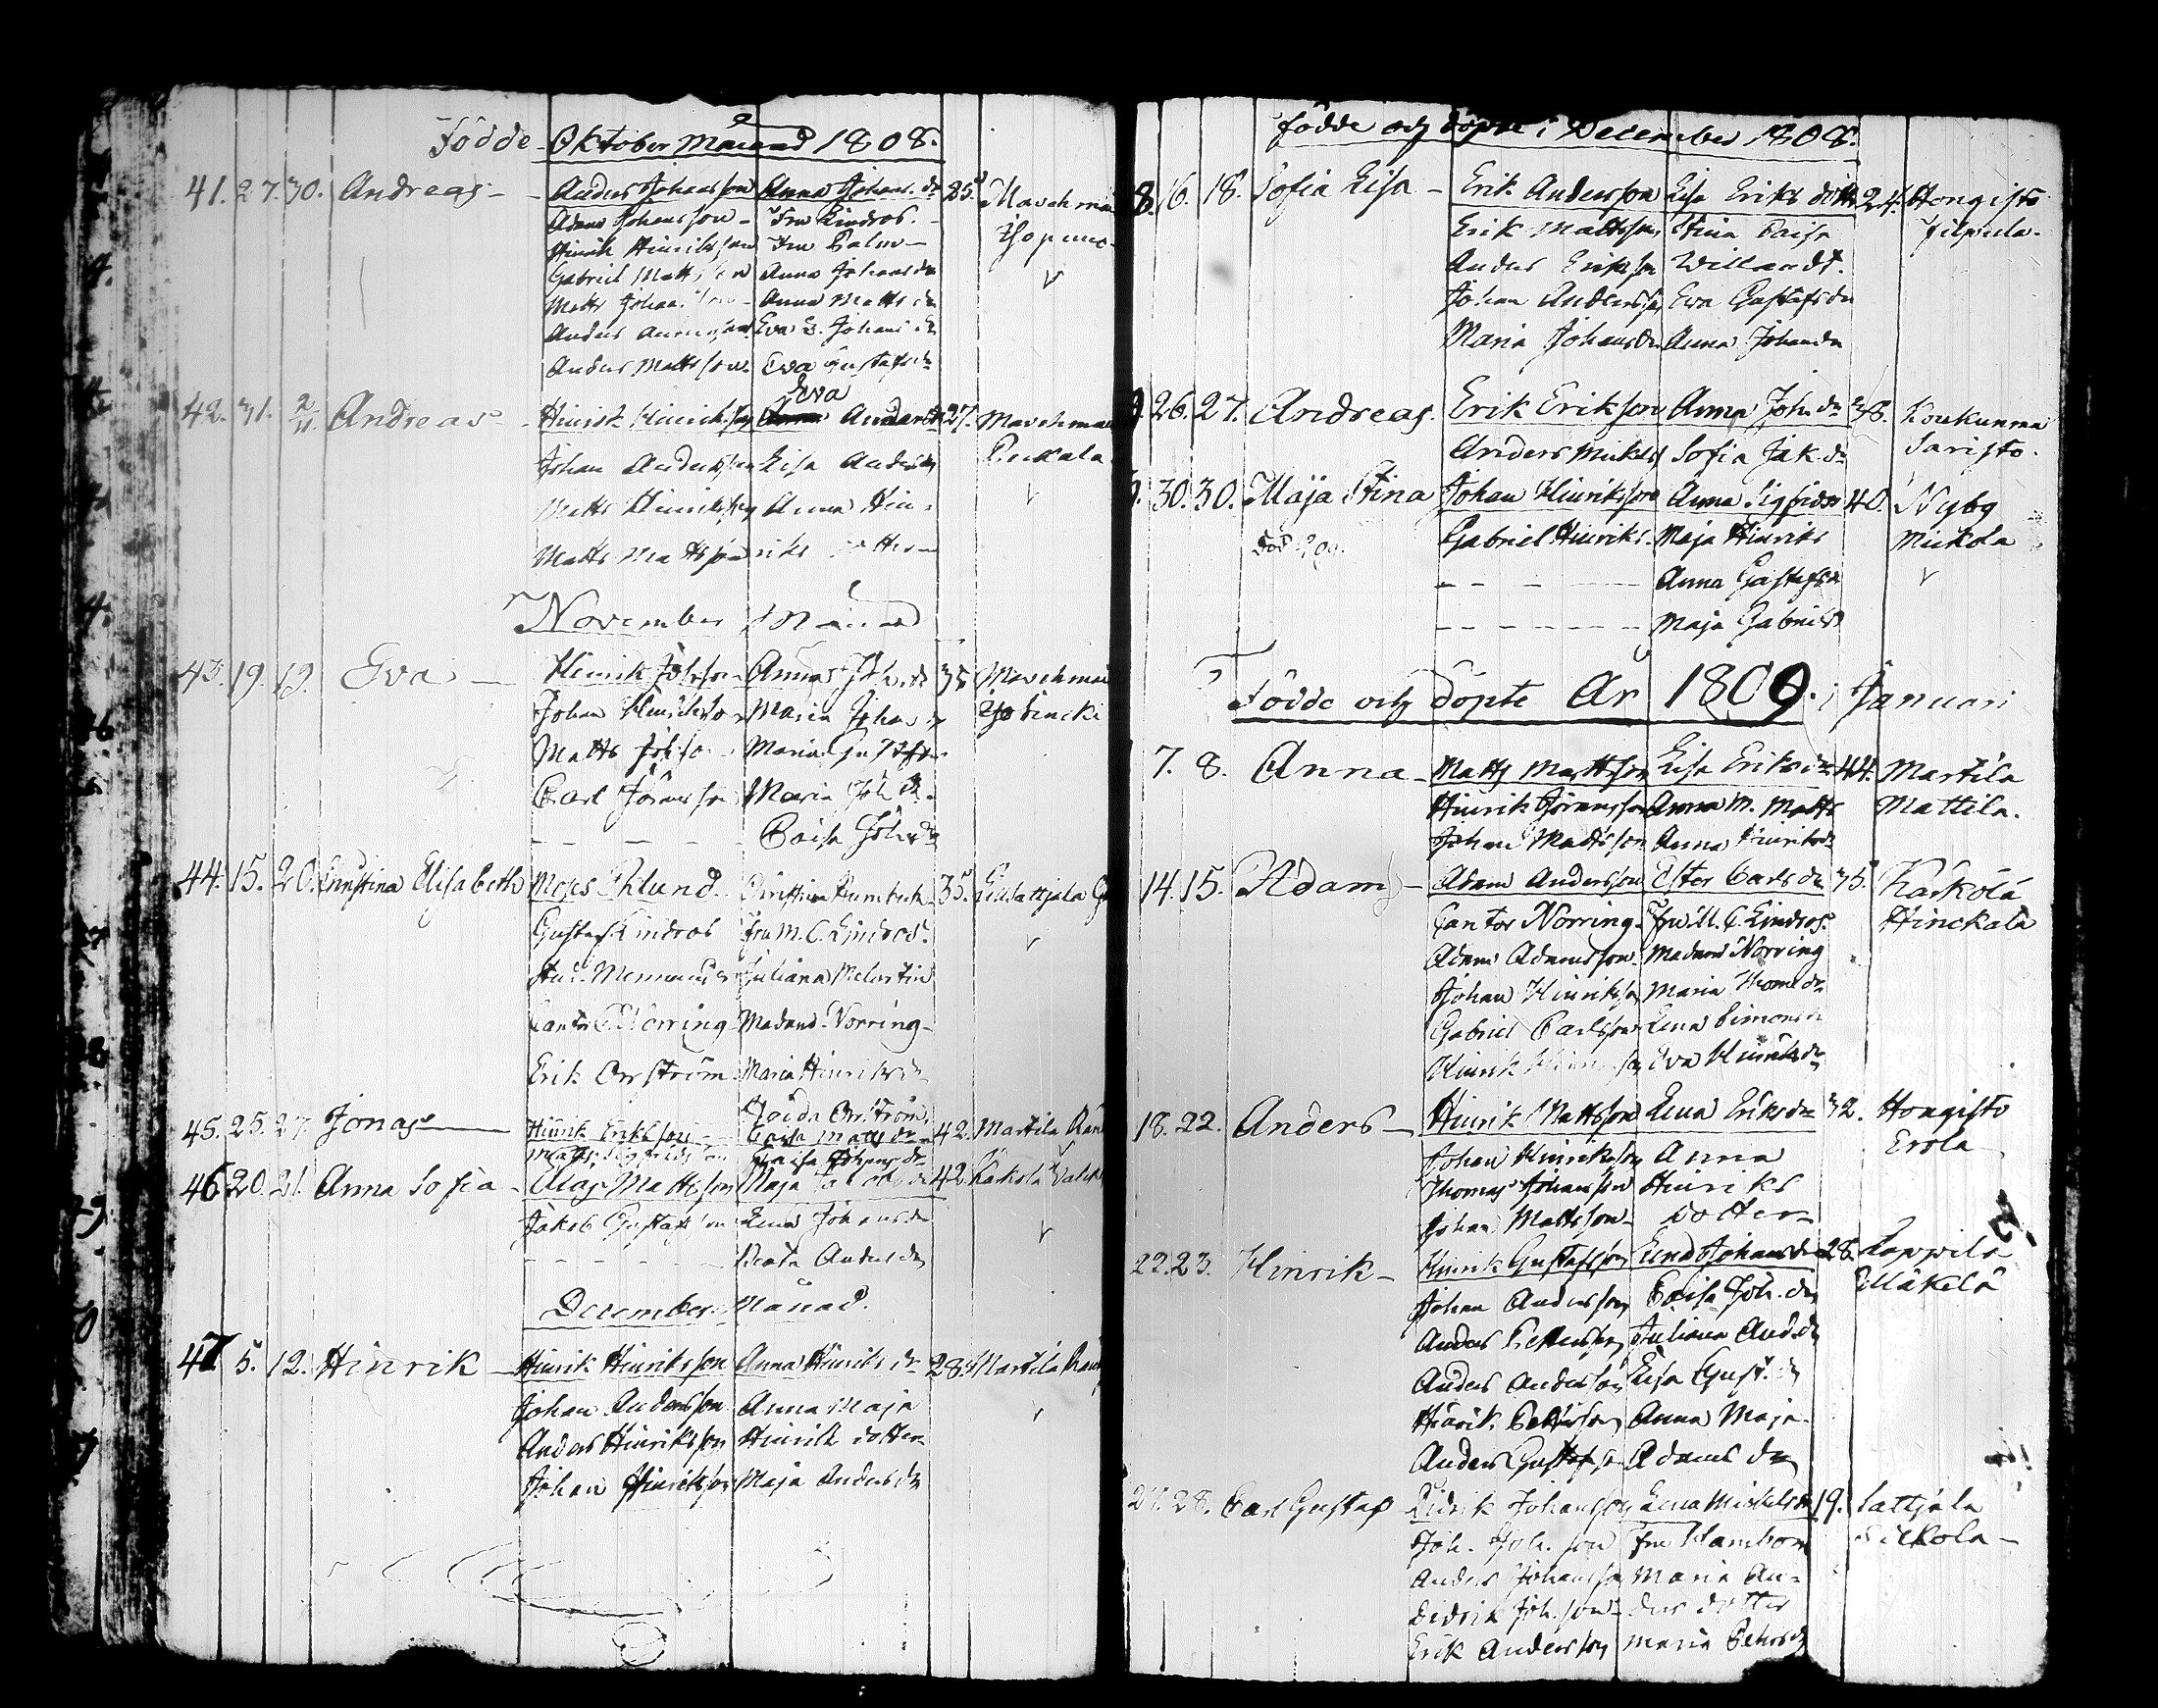 Födde Oktober Månad 1808.
41. 27. 30. Andreas - Anders Johansson Anna Johans. dr 25.
Adam Johansson - Fru Lindros. -
Hinrik Hinriksson Fru Palm -
Gabriel Matts Anna Johans dr
Matts Johan. Anna Matts dr
Anders Eva Johans dr
Anders Mattsson. Eva Gustafs dr
Eva
42. 31. 2/11 Andreas - Hinrik Hinrichson Anders dr 27.
Johan Andersson Lisa Anders
Matts Hinriksson Anna Hin-
Matts Mattsson riks dotter -
November Månad
43. 19. 19. Eva - Hinrik Johsson Anna Joh. dr 35
Johan Hinriksson Maria Johans dr
Matts Joh Maria Gustfs
Carl Göransson Maria Joh dr.
- - - - - Caisa Joh dr
44. 15. 20. Christina Elisabeth Moses Ahlund Christina 35.
Gustaf Lindros Fru M. C. Lindros.
Stud. Juliana
Cantor Norring Madame Norring -
Erik Orrström Maria Hinriks dr
Orrström
45. 25. 27. Jonas Hinrik Erikson Caisa Matts dr 42. Martila
Caisa Johans dr
46. 20. 21. Anna Sofia - Mattsson Maja 42. Kärkölä
Jakob Gustafsson Lena Johans dr
- - - - - Beata Anders dr
December Månad.
47. 5. 12. Hinrik - Hinrik Hinriksson Anna Hinriks dr 28. Martila
Johan Andersson Anna Maja
Anders Hinriksson Hinriks dotter
Johan Hinriksson Maja Anders dr
födde och döpte i December 1808.
8. 16. 18. Sofia Lisa - Erik Andersson Lisa Eriks dotter 24. Hongisto
Erik Mattsson Stina Caisa Jilpula.
Anders Erikson Willandt.
Johan Andersson Eva Gustafs dr
Maria Johans dr Anna Johans dr
26. 27. Andreas. Erik Erikson Anna Joh. dr 38. Koukunma
Anders Mickels Sofia Jak. dr Saristo.
30. 30. Maja Stina Johan Hinriksson Anna Sigfrids 40. Nyby
Gabriel Hinriks. Maja Hinriks Mickola
- - - - Anna Gustafs dr
- - - - - - Maja Gabriels
Födde och döpte År 1809. i Januari
7. 8. Anna - Matts Mattsson Lisa Eriks dr 44. Martila
Hinrik Göransson Anna M. Matts Mattila.
Johan Mattsson Anna Hinriks dr
14. 15. Adam - Adam Andersson Ester Carls dr 35. Kärkölä
Cantor Norring. Fru M. C. Lindros. Hinckala
Adam Adamsson. Madame Norring
Johan Hinriksson Maria Thoms dr
Gabriel Carlsson Lena Simons dr
Hinrik Eva Hinriks dr
18. 22. Anders - Hinrik Mattsson Lena Eriks dr 32. Hongisto
Johan Hinriksson Anna Erola
Thomas Johansson Hinriks
Johan Mattsson - dotter -
22. 23. Hinrik - Hinrik Gustafsson Lena Johans dr 28. Loppila
Johan Andersson Caisa Joh. dr Mäkelä
Anders Pettersson Juliana And. dr
Anders Andersson Lisa Gust. dr
Hinrik Pettersson Anna Maja
Anders Gustafson Adams dr
27. 28. Carl Gustaf Didrik Johansson Lena Mickels dr 19. Sattjala
Joh. Joh. son Fru
Anders Johansson Maria An-
Didrik Joh. son - ders dotter
Erik Andersson Maria Pehrs dr